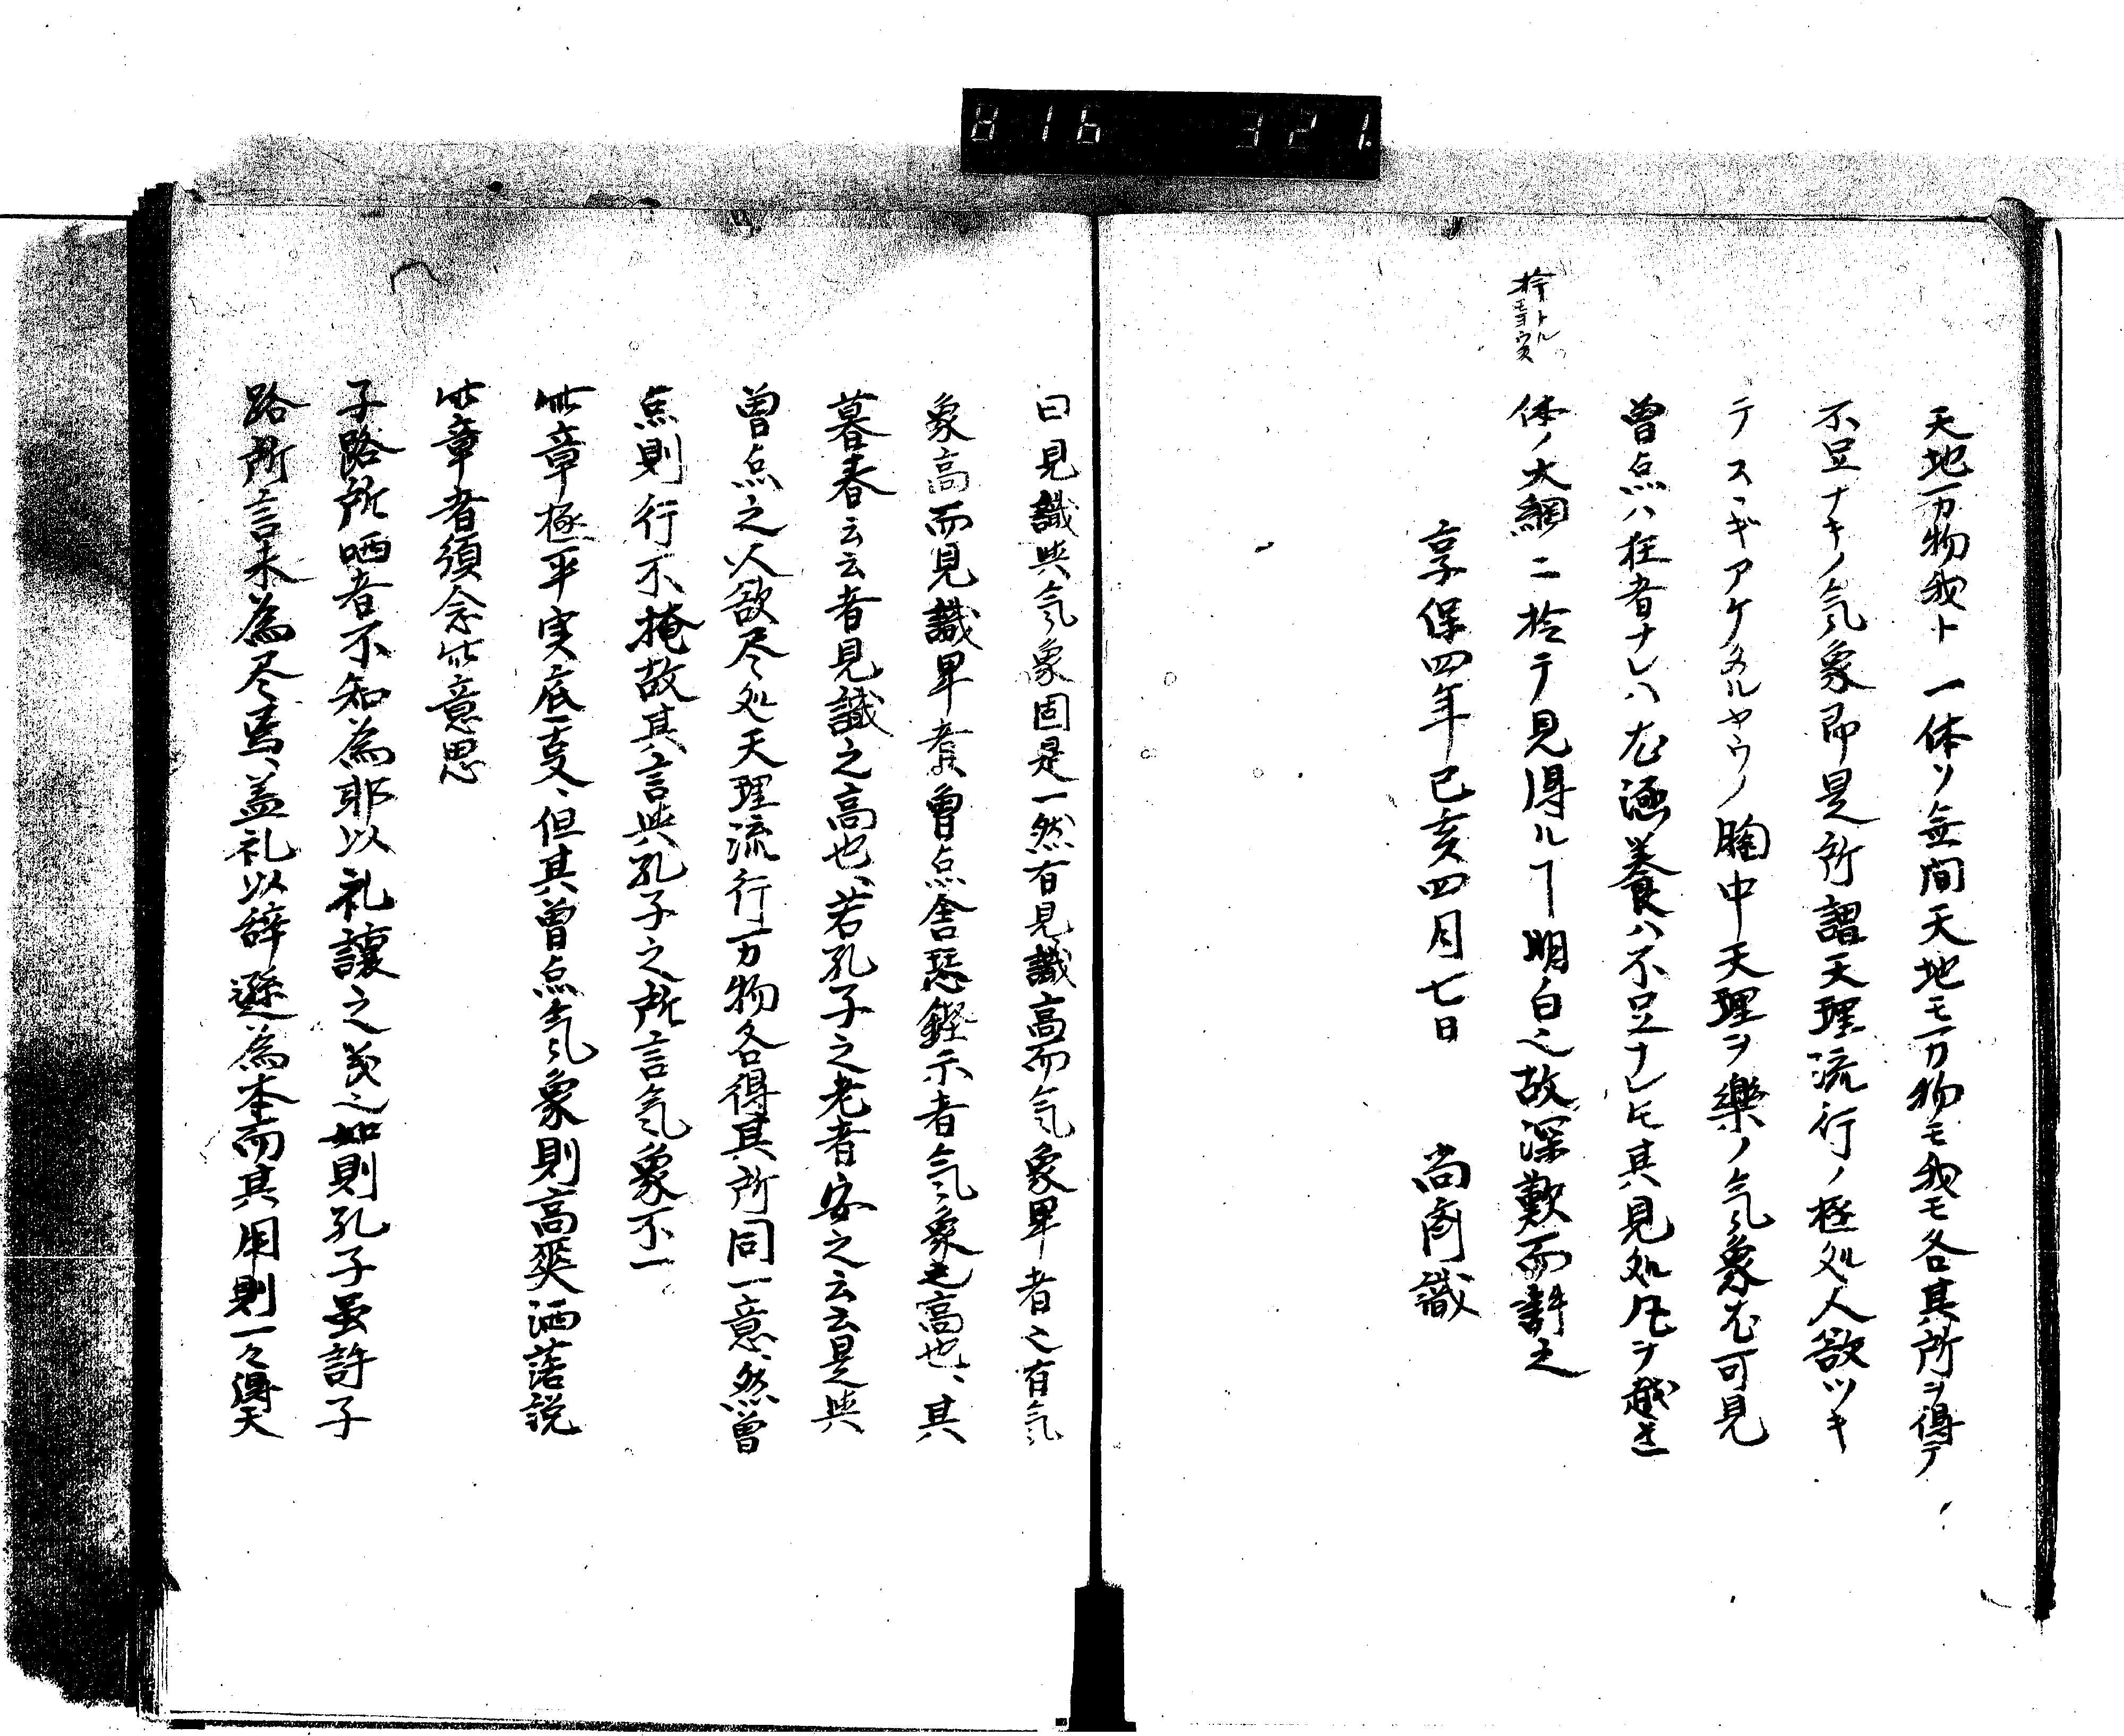 天地万物我ト一体ソ無間天地モ万物モ我モ各其所ヲ得テ
不足ナキノ気象即是所謂天理流行ノ極処人欲ツキ
テスヽギアケタルヤウノ胸中天理ヲ樂ノ気象尤可見
曾点ハ狂者ナレハ尤涵養ハ不足ナレトモ其見処凡ヲ越き
体ノ大綱ニ於テ見得ルヿ明白之故深歎而許之
享保四年己亥四月七日 尚斎識
曰見識與気象固是一然有見識高而気象卑者之有気
象高而見識卑者矣曾点舎瑟鏗尓者気象之高也、其
暮春云云者見識之高也、若孔子之老者安之云云是與
曽点之人欲尽処天理流行万物各得其所同一意、然曽
点則行不掩故其言與孔子之所言気象不一
此章極平実底事、但其曽点気象則高爽洒落説
此章者須会此意思
子路所哂者不知為邦以礼讓之義之如則孔子虽許子
路所言未為尽焉、盖礼以辞遜為本而其用則一々得天
816 321